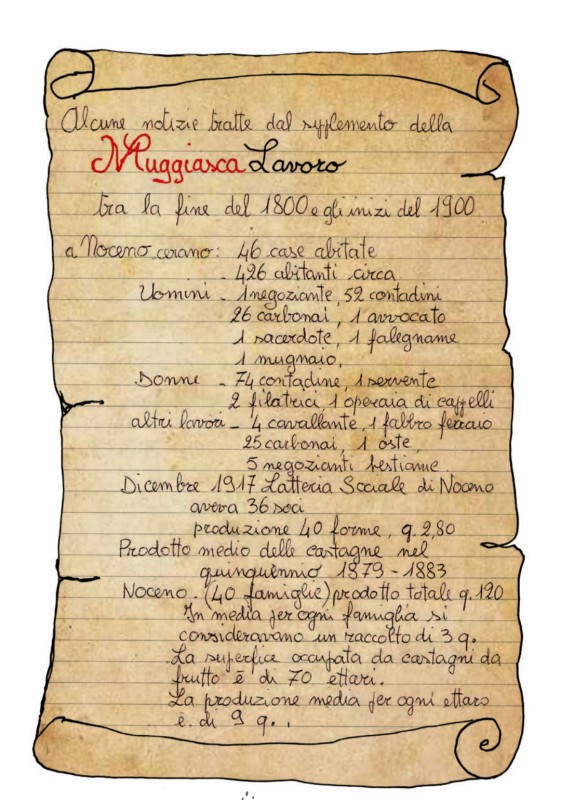 Alcune notizie tratte dal supplemento della
Muggiasca Lavoro
tra la fine del 1800 e gli inizi del 1900
a Noceno cerano: 46 case abitate
- 426 abitanti circa
Uomini - 1 negoziante, 52 contadini
26 carbonai, 1 avvocato
1 sacerdote, 1 falegname
1 mugnaio,
Donne - 74 contadine, 1 servente
2 filatrici, 1 operaia di cappelli
altri lavori - 4 cavallante, 1 fabbro ferraio
25 carbonai, 1 oste,
5 negozianti bestiame
Dicembre 1917 Latteria Sociale di Noceno
aveva 36 soci
produzione 40 forme, q. 2,80
Prodotto medio delle castagne nel
quinquennio 1879 - 1883
Noceno - (40 famiglie) prodotto totale q. 120
In media per ogni famiglia si
consideravano un raccolto di 3 q.
La superfice occupata da castagni da
frutto è di 70 ettari.
La produzione media per ogni ettaro
è di 9 q. .